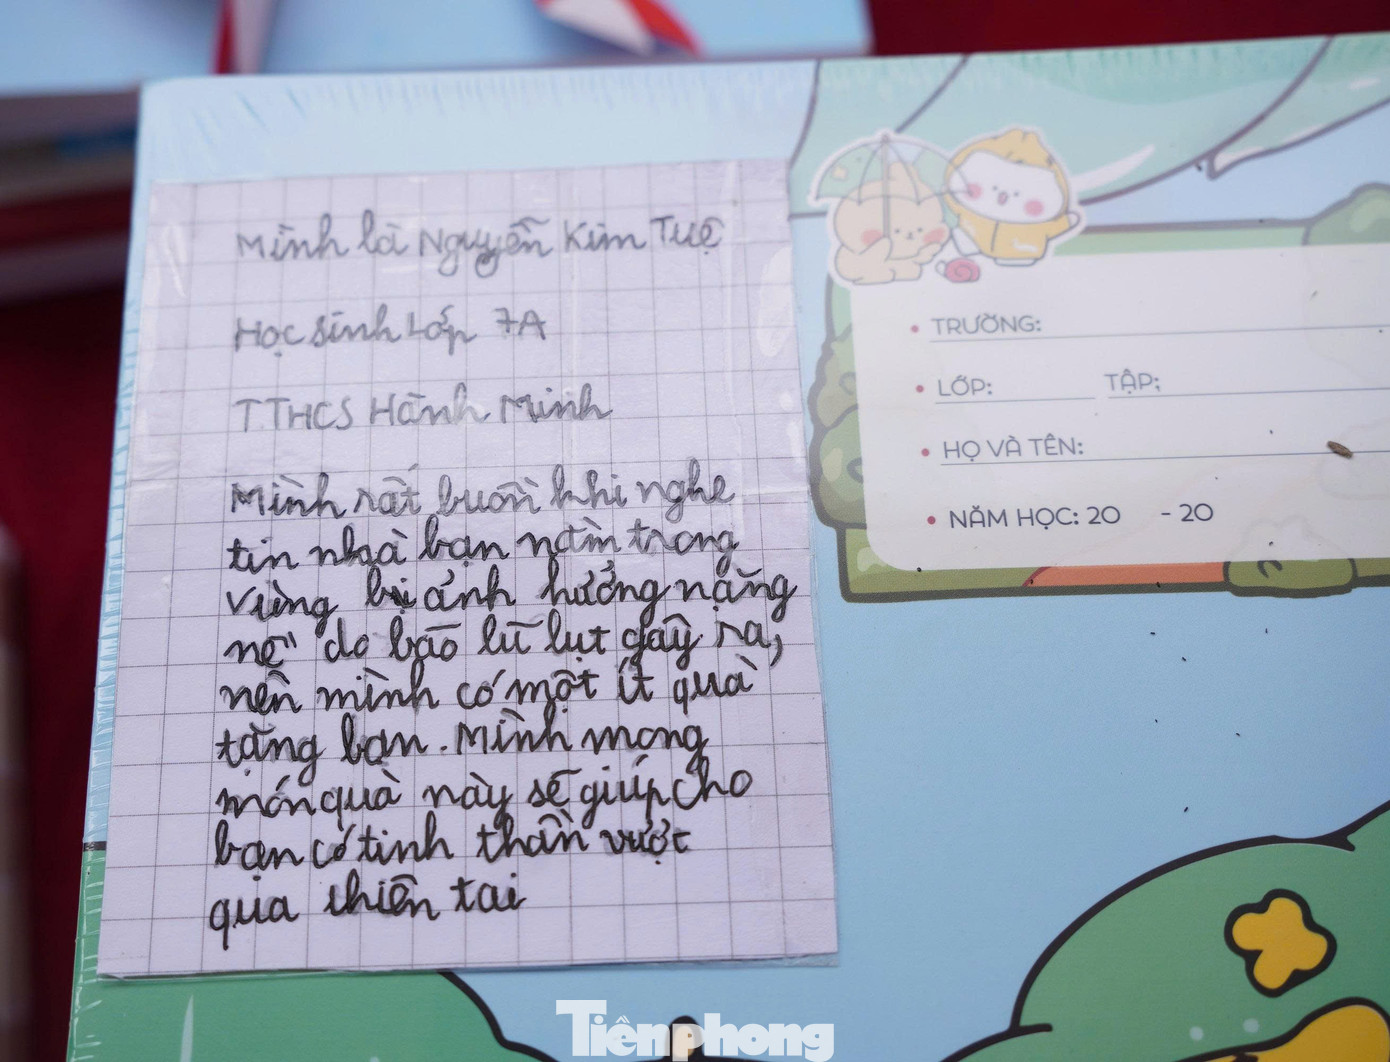 Mình là Nguyễn Kim Tuệ
Học sinh Lớp 7A
TTHCS Hành Minh
Mình rất buồn khi nghe
tin nhà bạn nằm trong
vùng bị ảnh hưởng nặng
nề do bão lũ lụt gây ra,
nên mình có một ít quà
tặng bạn. Mình mong
món quà này sẽ giúp cho
bạn có tinh thần vượt
qua thiên tai
TRƯỜNG:
LỚP: TẬP:
HỌ VÀ TÊN:
NĂM HỌC: 20 - 20
Tiềnphong